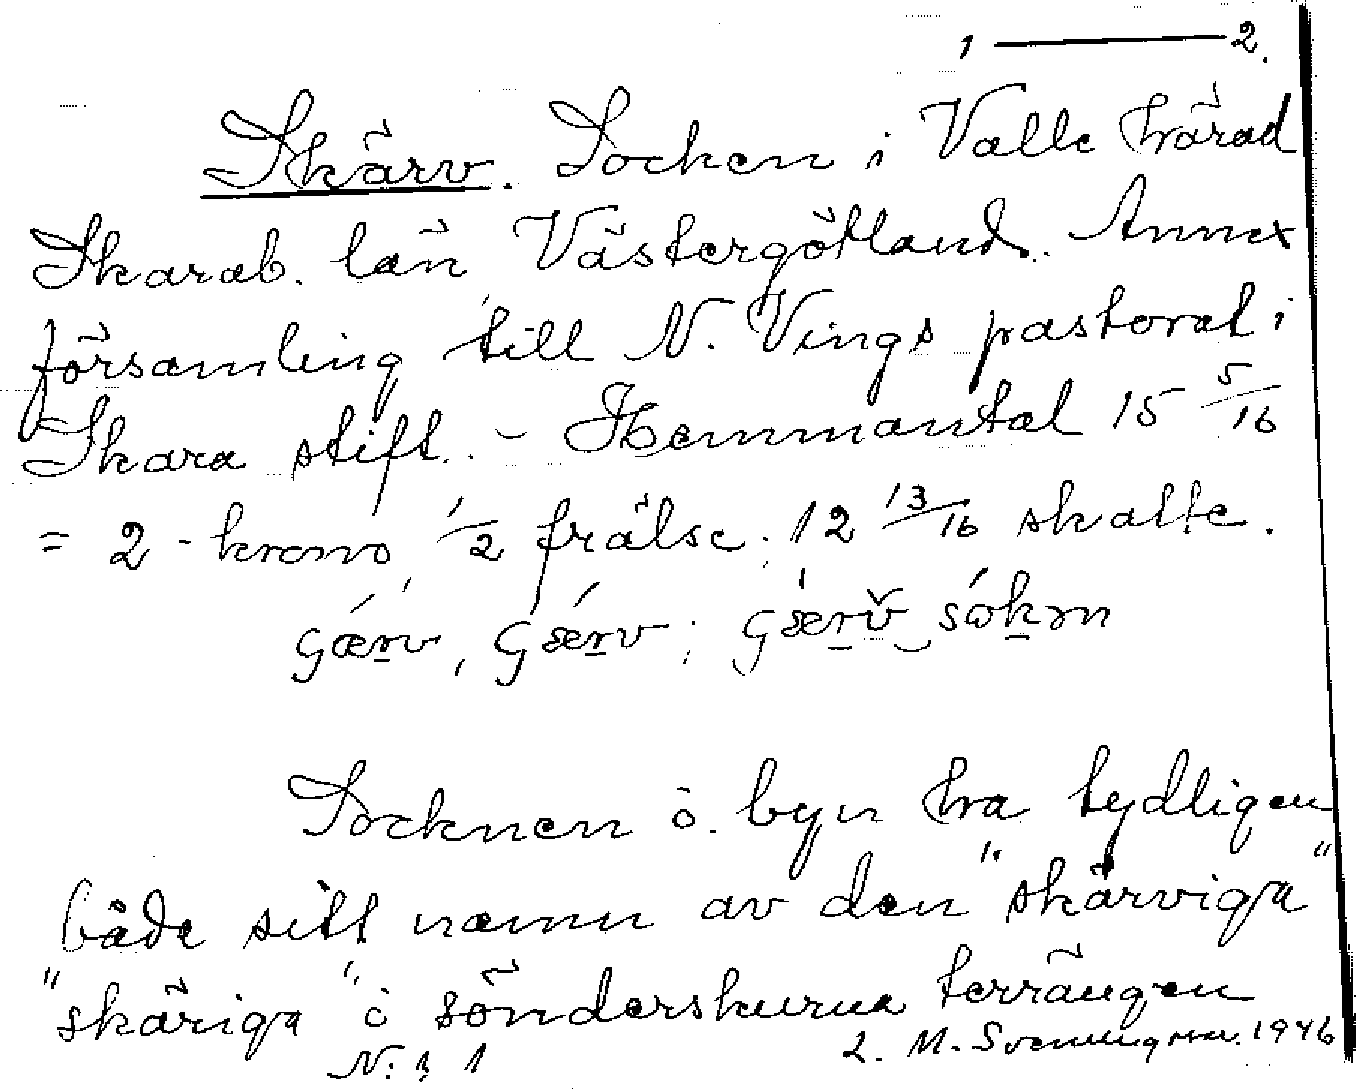 1 — 2.
Skärv. Socken i Valle härad
Skarab. län, Västergötland. Annex
församling till N. Vings pastorat i
Skara stift. - Hemmantal 15 5/16
= 2 - krono, 1/2 frälse; 12 13/16 skatte.
Socknen ò. byn ha tydligen
både sitt namn av den "skärviga"
"skäriga" ò sönderskurna terrängen
N: 1
2. M. Svenungsson. 1946